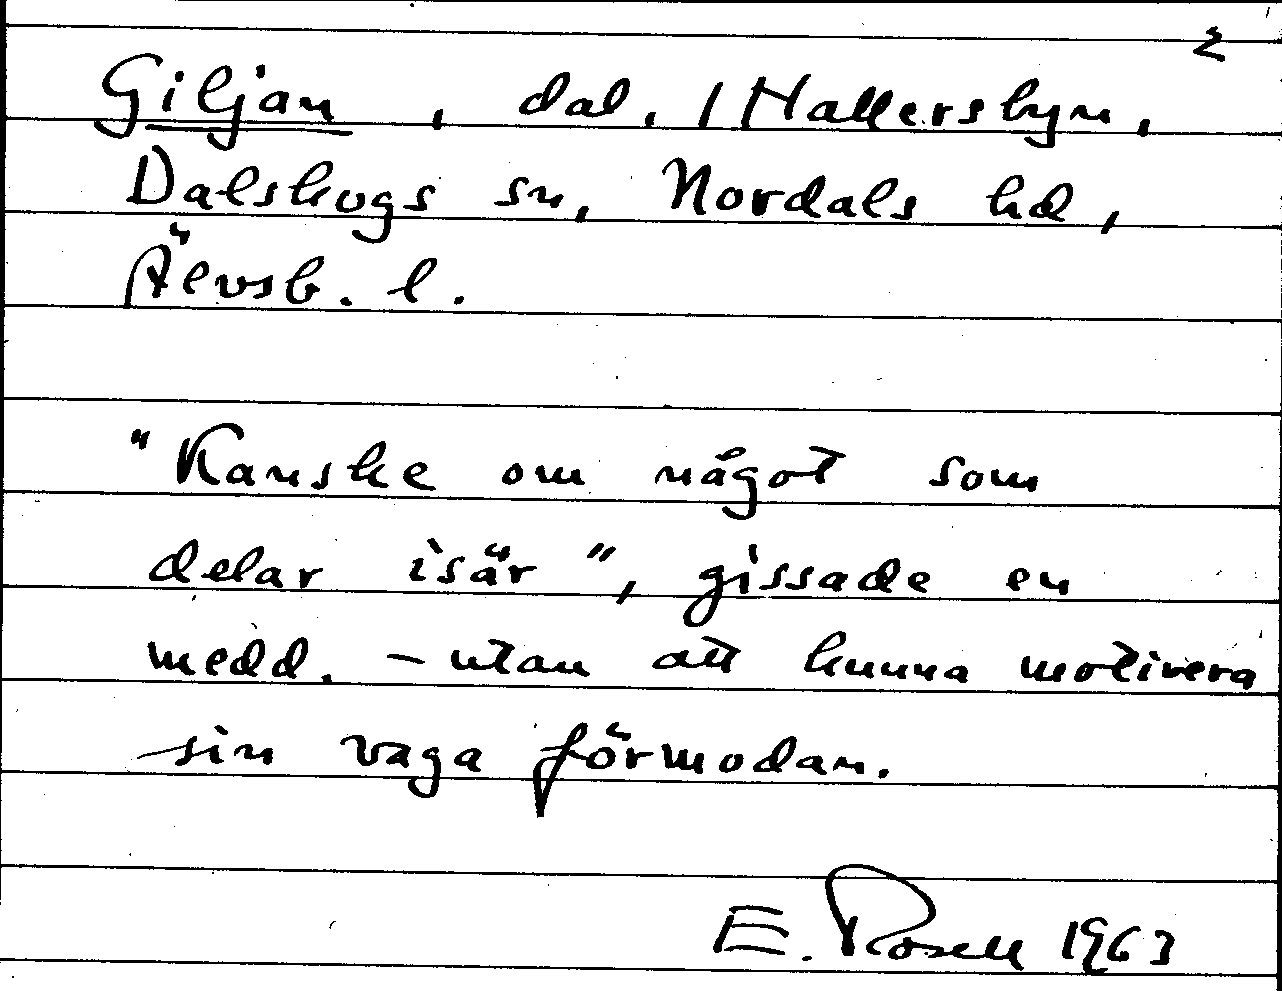 2
Giljan, dal, i Hallersbyn,
Dalskogs sn, Nordals hd,
Älvsb. l.
"Kanske om något som
delar isär", gissade en
medd. - utan att kunna motivera
sin vaga förmodan.
E. Rosell 1963